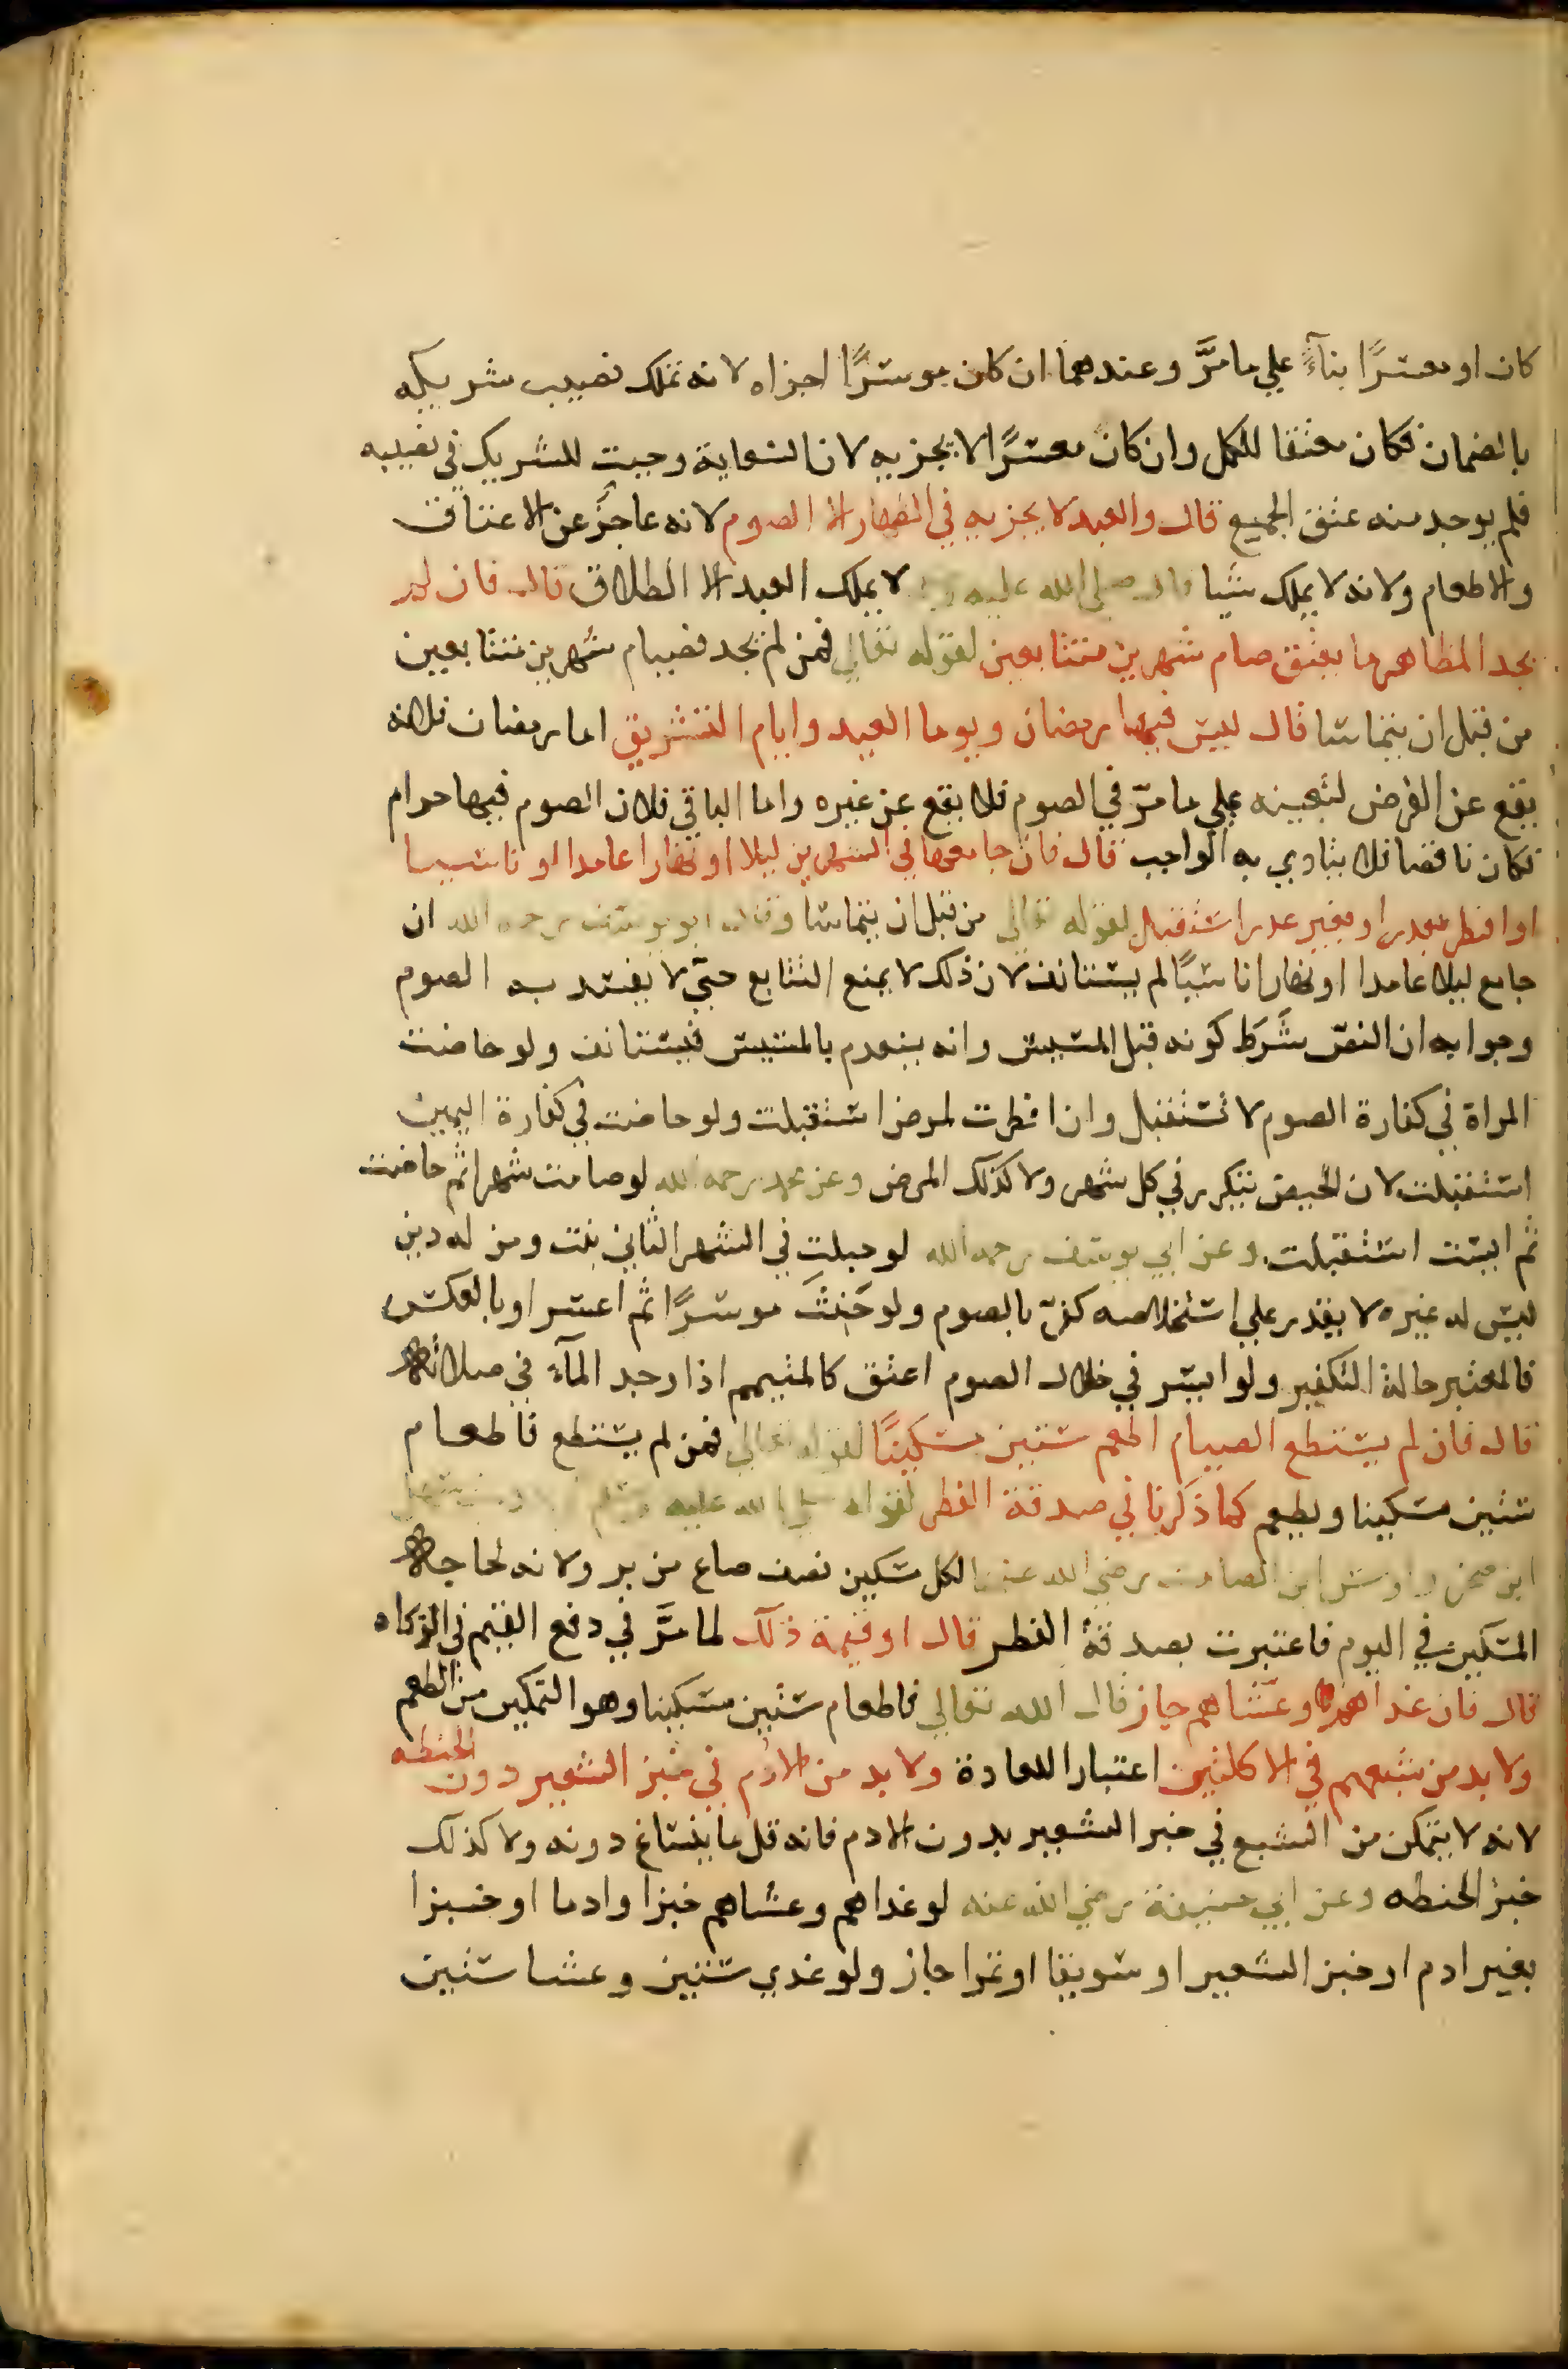 كان او معسرًا بناءً علي ما مرَّ وعندهما ان كان موسرًا اجزاه لانه تملك نصيب شريكه
بالضمان فكان معتقا للكل وان كان معسرًا لا يجزيه لان السعاية وجبت للشريك في نصيبه
فلم يوجد منه عتق الجميع قال والعبد لا يجزيه في الظهار الا الصوم لانه عاجزٌ عن الاعتاق
والاطعام ولانه لا يملك شيا قال صلي الله عليه لا يملك العبد الا الطلاق قال فان لم
يجد المظاهر ما يعتق صام شهرين متتابعين لقوله تعالي فمن لم يجد فصيام شهرين متتابعين
من قبل ان يتماسا قال ليس فيهما رمضان ويوما العيد وايام التشريق اما رمضان فلانه
يقع عن الفرض لتعيينه علي ما مرّ في الصوم فلا يقع عن غيره واما الباقي فلان الصوم فيها حرام
فكان ناقصا فلا يتادي به الواجب قال فان جامعها في الشهرين ليلا او نهارا عامدا او ناسيا
او افطر بعذر او بغير عذر استقبل لقوله تعالي من قبل ان يتماسا وقال ابو يوسف رحمه الله ان
جامع ليلا عامدا او نهارا ناسيًا لم يستانف لان ذلك لا يمنع التتابع حتّي لا يفسد به الصوم
وجوابه ان النصّ شَرَط كونه قبل المسيس وانه ينعدم بالمسيس فيستانف ولو حاضت
المراة في كفارة الصوم لا تستقبل وان افطرت لمرض استقبلت ولو حاضت في كفارة اليمين
استقبلت لان الحيض يتكرر في كل شهر ولا كذلك المرض وعن محمد رحمه الله لو صامت شهرا ثم حاضت
ثم ايست استقبلت وعن ابي يوسف رحمه الله لو حبلت في الشهر الثاني بنت ومن له دين
ليس له غيره لا يقدر علي استخلاصه كفّر بالصوم ولو حَنِثَ موسرًا ثم اعسر او بالعكس
فالمعتبر حالة التكفير ولو ايسر في خلال الصوم اعتق كالمتيمم اذا وجد المآء في صلاته
قال فان لم يستطع الصيام اطعم ستين مسكينًا لقوله تعالي فمن لم يستطع فاطعام
ستين مسكينا ويطعم كما ذكرنا في صدقة الفطر لقوله صلي الله عليه وسلم
ابن صخر واوس ابن الصامت رضي الله عنهما لكل مسكين نصف صاع من بر ولانه لحاجة
المسكين في اليوم فاعتبرت بصدقة الفطر قال او قيمة ذلك لما مرَّ في دفع القيم في الزكاه
قال فان غداهم وعشاهم جاز قال الله تعالي فاطعام ستين مسكينا وهو التمكين من الطعم
ولا بد من شبعهم في الاكلتين اعتبارا للعادة ولا بد من الادم في خبز الشعير دون الحنطه
لانه لا يتمكن من الشبع في خبز الشعير بدون الادم فانه قل ما ينساغ دونه ولا كذلك
خبز الحنطه وعن ابي حنيفة رضي الله عنه لو غداهم وعشاهم خبزا وادما او خبزا
بغير ادم او خبز الشعير او سويقا او تمرا جاز ولو غدي ستين وعشا ستين